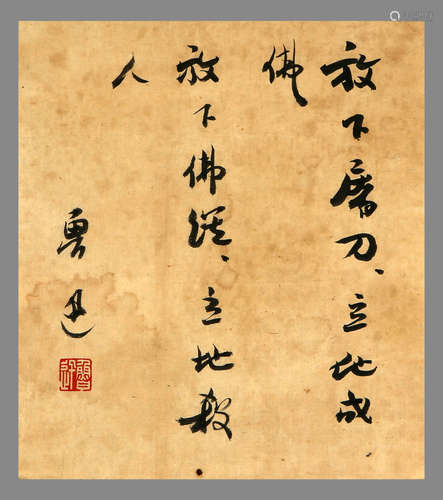 放下屠刀、立地成
佛
放下佛经、立地殺
人
魯迅
魯迅